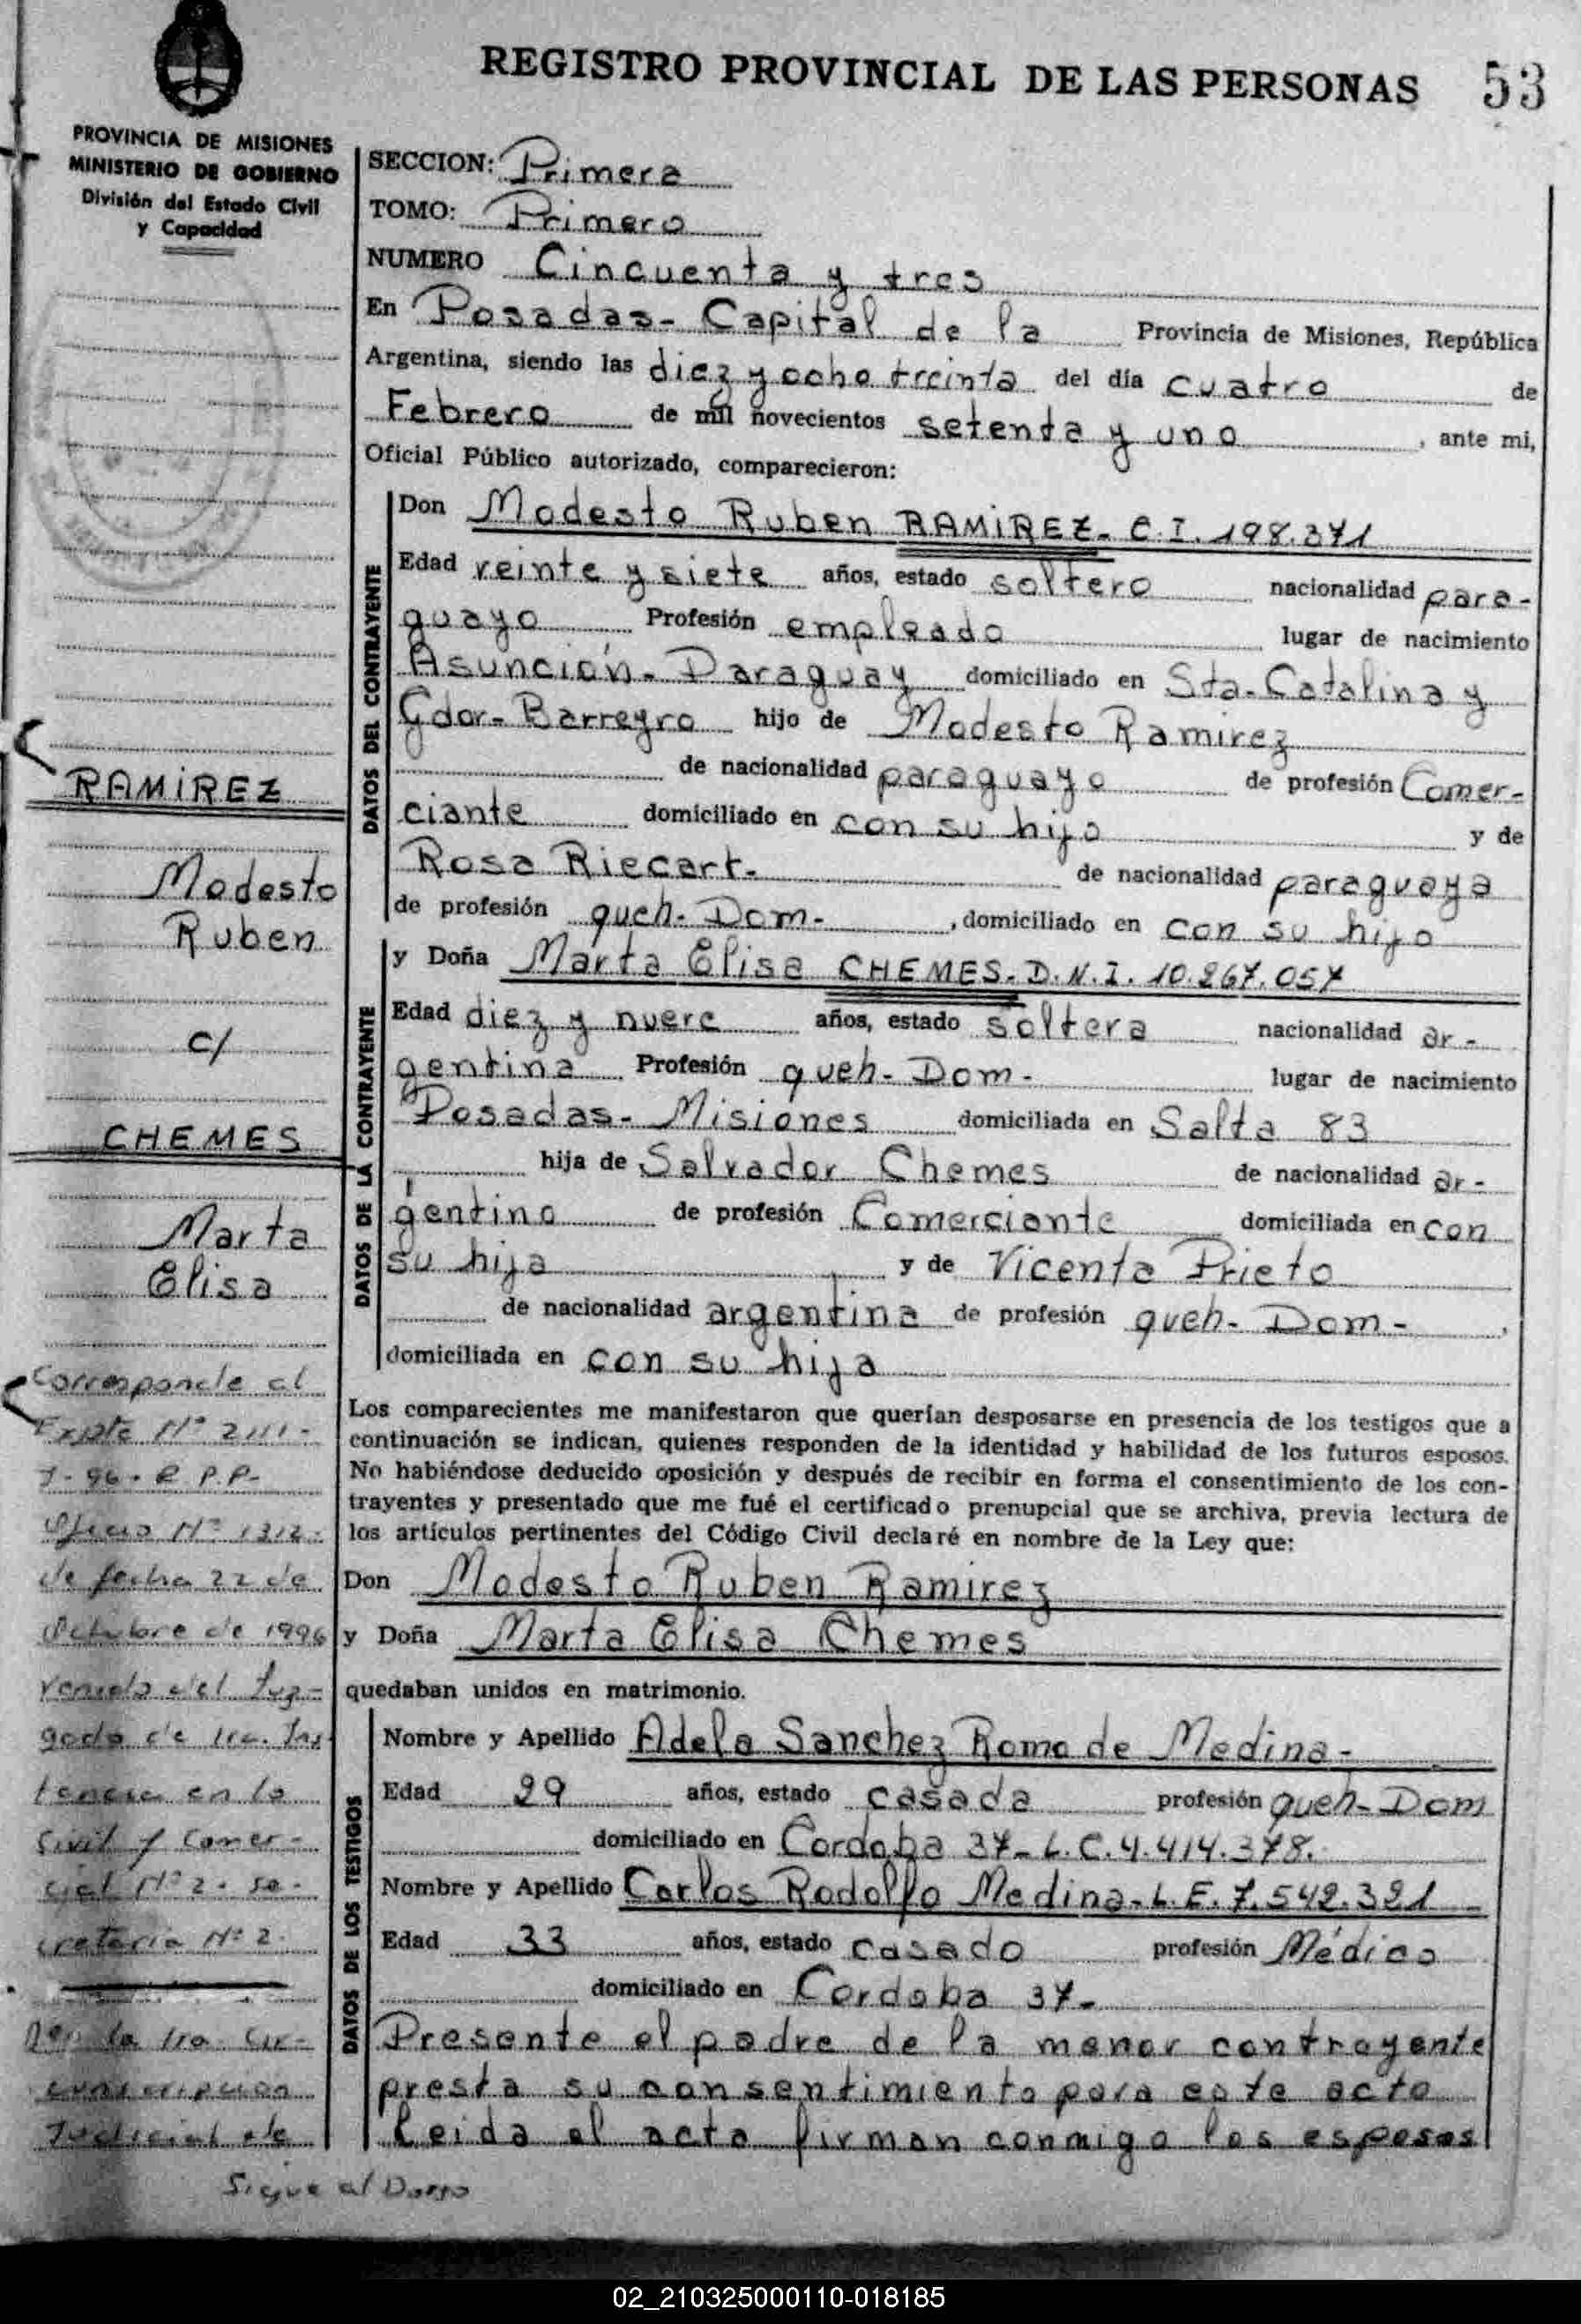 REGISTRO PROVINCIAL DE LAS PERSONAS 53
PROVINCIA DE MISIONES
MINISTERIO DE GOBIERNO
División del Estado Civil
y Capacidad
SECCION: Primera
TOMO: Primero
NUMERO Cincuenta y tres
En Posadas - Capital de la Provincia de Misiones, República
Argentina, siendo las diez y ocho treinta del día cuatro de
Febrero de mil novecientos setenta y uno, ante mi,
Oficial Público autorizado, comparecieron:
DATOS DEL CONTRAYENTE
Don Modesto Ruben RAMIREZ - C.I. 198.371
Edad veinte y siete años, estado soltero nacionalidad para-
guayo Profesión empleado lugar de nacimiento
Asunción - Paraguay domiciliado en Sta. Catalina y
Gdor. Barreyro hijo de Modesto Ramirez
de nacionalidad paraguayo de profesión Comer-
ciante domiciliado en con su hijo y de
Rosa Riecart. de nacionalidad paraguaya
de profesión queh - Dom -, domiciliado en con su hijo
DATOS DE LA CONTRAYENTE
y Doña Marta Elisa CHEMES - D.N.I. 10.267.057
Edad diez y nueve años, estado soltera nacionalidad ar-
gentina Profesión queh - Dom - lugar de nacimiento
Posadas - Misiones domiciliada en Salta 83
hija de Salvador Chemes de nacionalidad ar-
gentino de profesión Comerciante domiciliada en con
su hija y de Vicenta Prieto
de nacionalidad argentina de profesión queh - Dom -,
domiciliada en con su hija
Los comparecientes me manifestaron que querían desposarse en presencia de los testigos que a
continuación se indican, quienes responden de la identidad y habilidad de los futuros esposos.
No habiéndose deducido oposición y después de recibir en forma el consentimiento de los con-
trayentes y presentado que me fué el certificado prenupcial que se archiva, previa lectura de
los artículos pertinentes del Código Civil declaré en nombre de la Ley que:
Don Modesto Ruben Ramirez
y Doña Marta Elisa Chemes
quedaban unidos en matrimonio.
DATOS DE LOS TESTIGOS
Nombre y Apellido Adela Sanchez Romo de Medina -
Edad 29 años, estado casada profesión queh - Dom
domiciliado en Cordoba 37 - L.C. 4.414.378.
Nombre y Apellido Carlos Rodolfo Medina - L.E. 7.542.321
Edad 33 años, estado casado profesión Médico
domiciliado en Cordoba 37 -
Presente el padre de la menor contrayente
presta su consentimiento para este acto
Leida el acta firman conmigo los esposos
RAMIREZ
Modesto
Ruben
c/
CHEMES
Marta
Elisa
Corresponde al
Expte Nº 2111 -
Oficio Nº 1312 -
de fecha 22 de
Octubre de 1996
venido del Juz-
gado de 1ra. Ins
tancia en lo
Civil y Comer-
cial Nº 2 - Se-
cretaria Nº 2.
de la 1ra. Cir-
cunscripcion
Judicial de
Sigue al Dorso
02_210325000110-018185